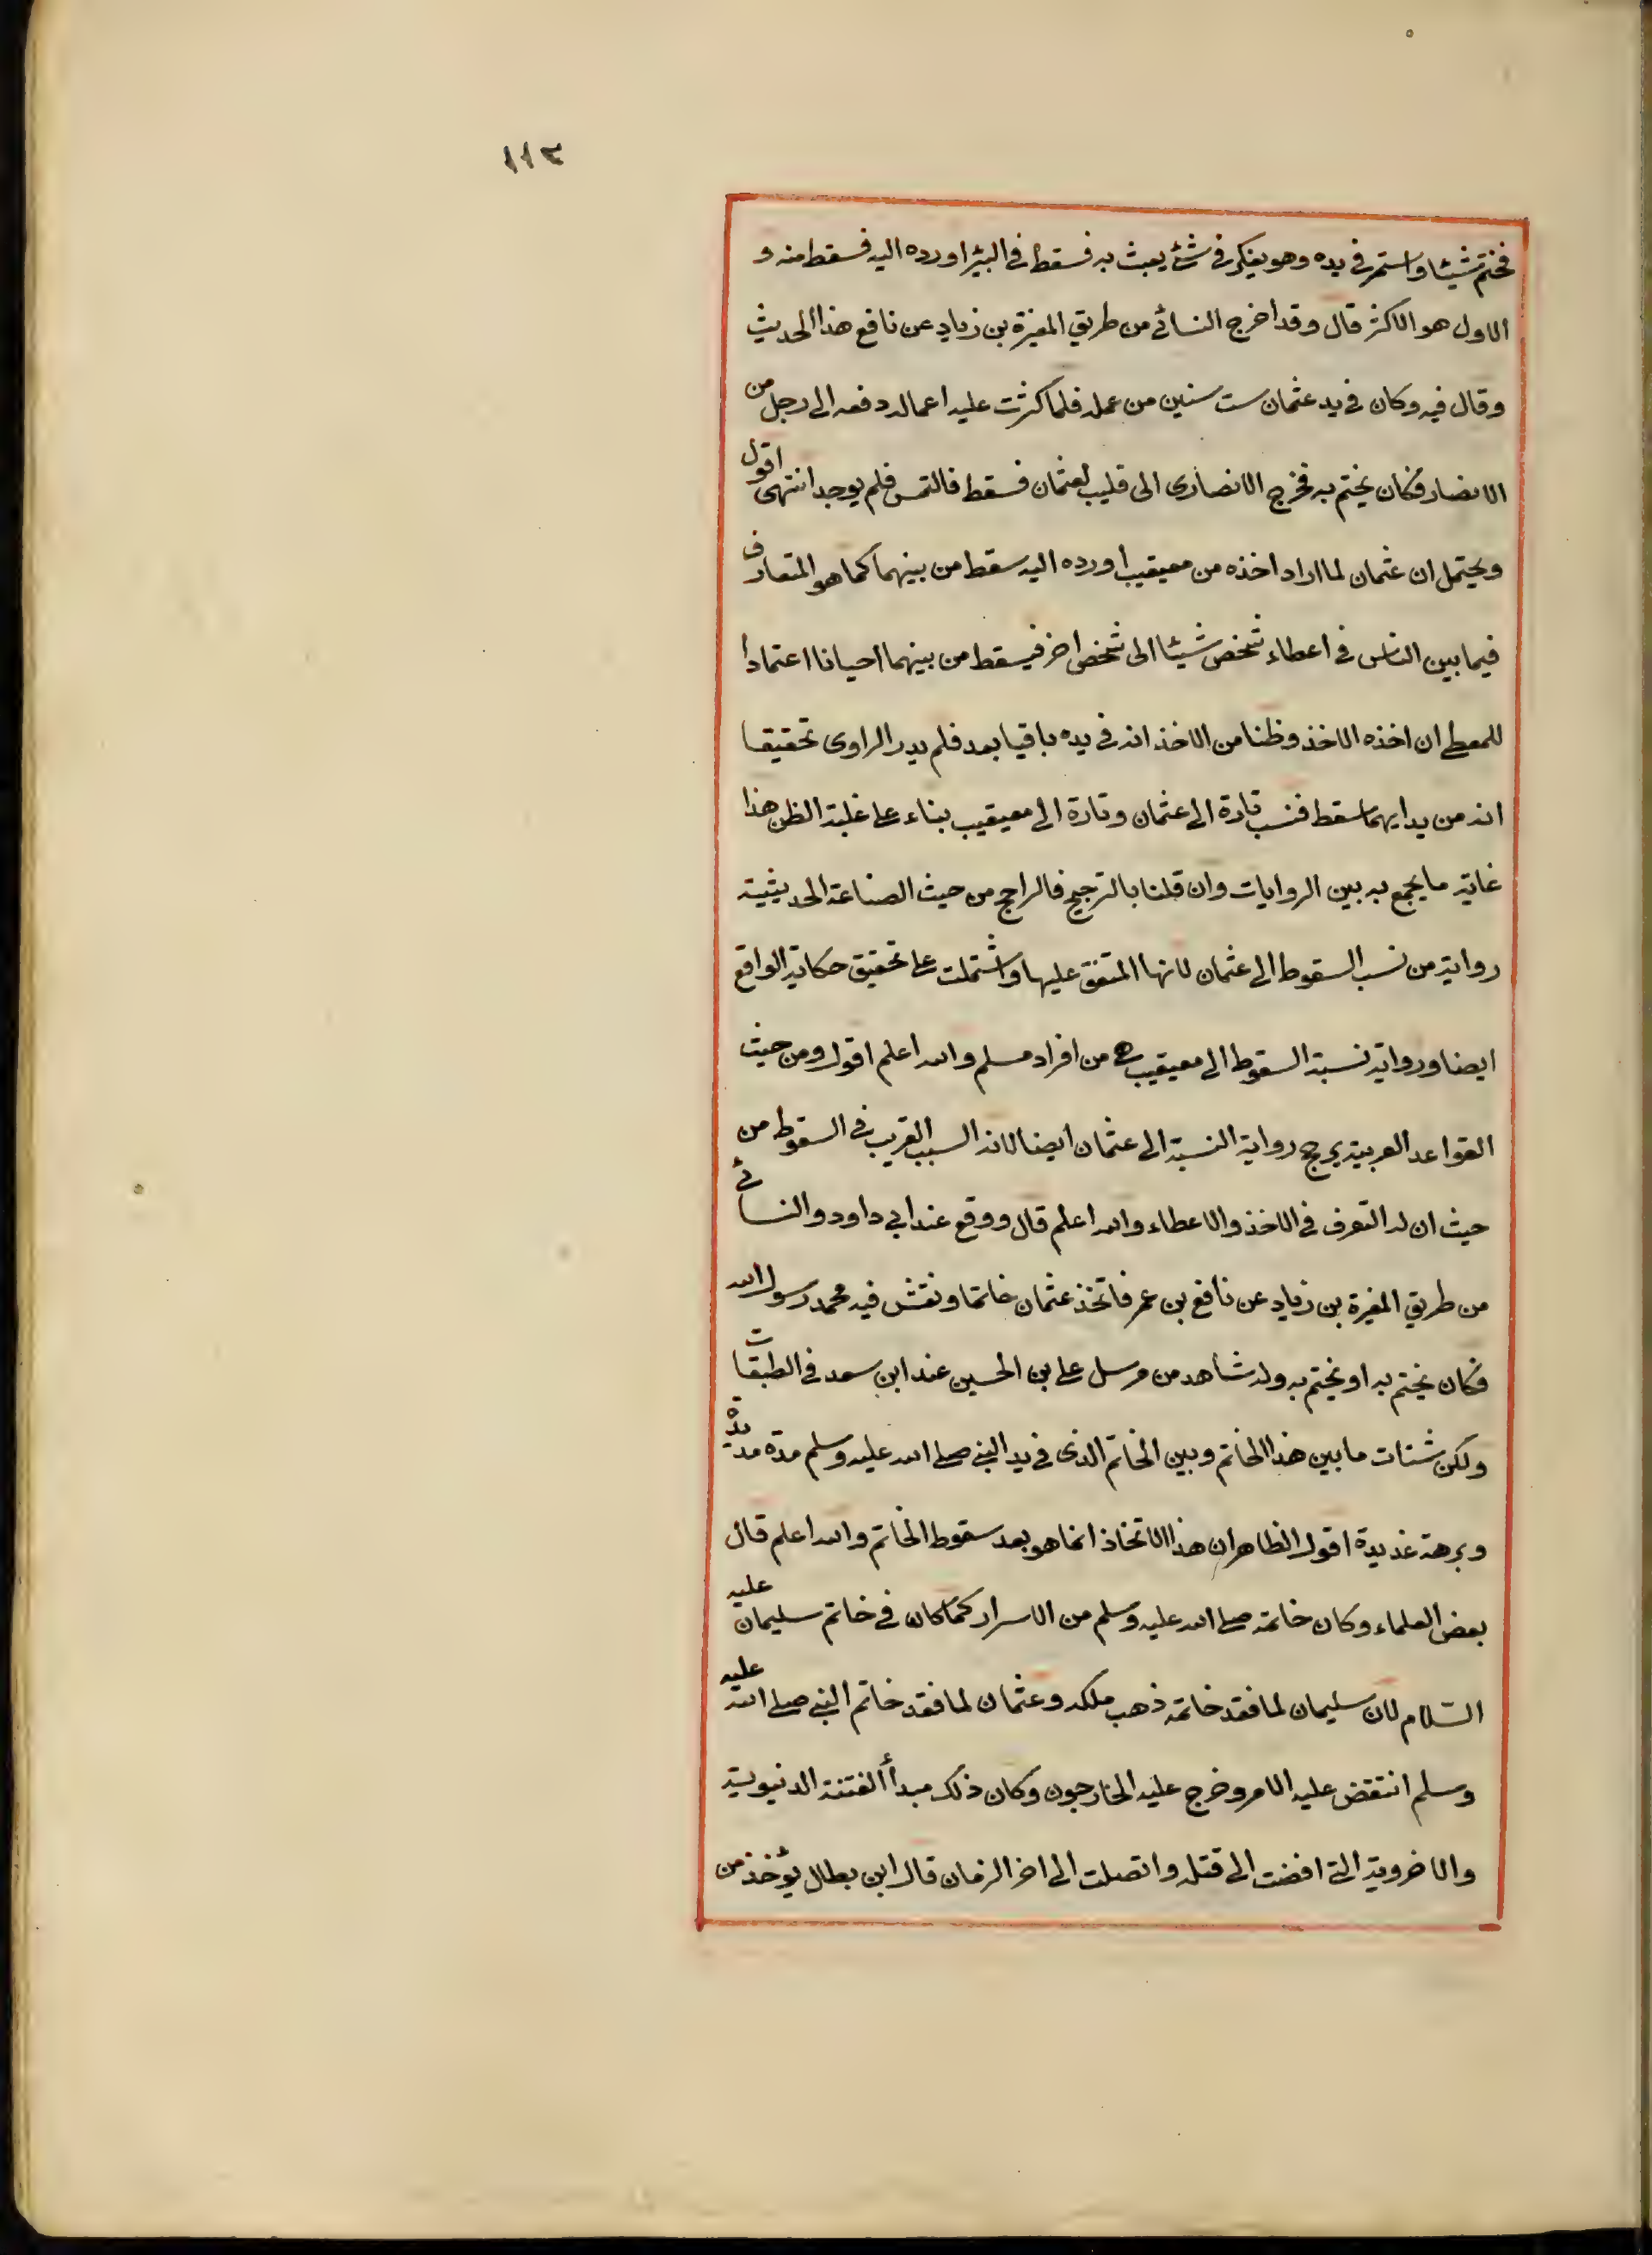 ١١٣
فختم شيئا واستمر في يده وهو يفكر في شئ يعبث به فسقط في البئر او رده اليه فسقط منه و
الاول هو الاكثر قال وقد اخرج النسائي من طريق المغيرة بن زياد عن نافع هذا الحديث
وقال فيه وكان في يد عثمان ست سنين من عمله فلما كثرت عليه اعماله دفعه الى رجل من
الانصار فكان يختم به فخرج الانصارى الى قليب لعثمان فسقط فالتمس فلم يوجد انتهى اقول
ويحتمل ان عثمان لما اراد اخذه من معيقيب او رده اليه سقط من بينهما كما هو المتعارف
فيما بين الناس في اعطاء شخص شيئا الى شخص اخر فيسقط من بينهما احيانا اعتمادا
للمعطي ان اخذه الاخذ وظنا من الاخذ انه في يده باقيا بعد فلم يدر الراوى تحقيقا
انه من يد ايهما سقط فنسب تارة الى عثمان وتارة الى معيقيب بناء على غلبة الظن هذا
غاية ما يجمع به بين الروايات وان قلنا بالترجيح فالراجح من حيث الصناعة الحديثية
رواية من نسب السقوط الى عثمان لانها المتفق عليها واشتملت على تحقيق حكاية الواقع
ايضا ورواية نسبة السقوط الى معيقيب هي من افراد مسلم والله اعلم اقول ومن حيث
القواعد العربية يرجح رواية النسبة الى عثمان ايضا لانه السبب القريب في السقوط من
حيث ان له التعرف في الاخذ والاعطاء والله اعلم قال ووقع عند ابي داود والنسائي
من طريق المغيرة بن زياد عن نافع بن عمر فاتخذ عثمان خاتما ونقش فيه محمد رسول الله
فكان يختم به او يختم به وله شاهد من مرسل علي بن الحسين عند ابن سعد في الطبقات
ولكن شتات ما بين هذا الخاتم وبين الخاتم الذى في يد النبي صلى الله عليه وسلم مدة مديدة
وبرهة عديدة اقول الظاهر ان هذا الاتخاذ انما هو بعد سقوط الخاتم والله اعلم قال
بعض العلماء وكان خاتمه صلى الله عليه وسلم من الاسرار كما كان في خاتم سليمان عليه
السلام لان سليمان لما فقد خاتمه ذهب ملكه وعثمان لما فقد خاتم النبي صلى الله عليه
وسلم انتقض عليه الامر وخرج عليه الخارجون وكان ذلك مبدأ الفتنة الدنيوية
والاخروية التي افضت الى قتله واتصلت الى اخر الزمان قال ابن بطال يؤخذ من